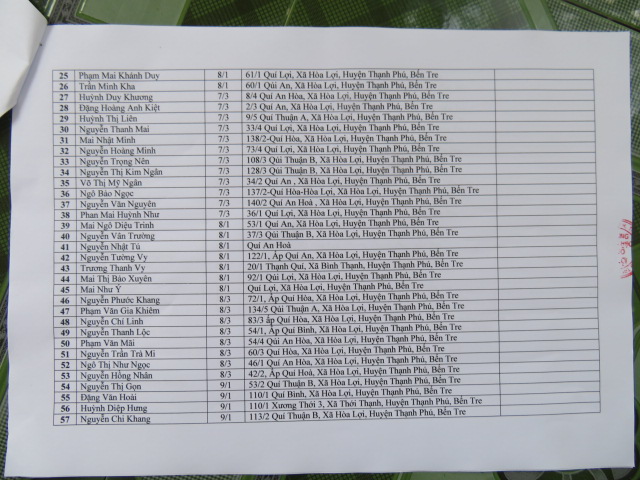 25 Phạm Mai Khánh Duy 8/1 61/1 Quí Lợi, Xã Hòa Lợi, Huyện Thạnh Phú, Bến Tre
26 Trần Minh Kha 8/1 60/1 Qúi An, Xã Hòa Lợi, Huyện Thạnh Phú, Bến Tre
27 Huỳnh Duy Khương 7/3 8/4 Quí An Hòa, Xã Hòa Lợi, Huyện Thạnh Phú, Bến Tre
28 Đặng Hoàng Anh Kiệt 7/3 2/3 Quí An, Xã Hòa Lợi, Huyện Thạnh Phú, Bến Tre
29 Huỳnh Thị Liên 7/3 9/5 Quí Thuận A, Xã Hòa Lợi, Huyện Thạnh Phú, Bến Tre
30 Nguyễn Thanh Mai 7/3 33/4 Quí Lợi, Xã Hòa Lợi, Huyện Thạnh Phú, Bến Tre
31 Mai Nhật Minh 7/3 138/2-Quí Hòa, Xã Hòa Lợi, Huyện Thạnh Phú, Bến Tre
32 Nguyễn Hoàng Minh 7/3 73/4 Quí Lợi, Xã Hòa Lợi, Huyện Thạnh Phú, Bến Tre
33 Nguyễn Trọng Nên 7/3 108/3 Qúi Thuận B, Xã Hòa Lợi, Huyện Thạnh Phú, Bến Tre
34 Nguyễn Thị Kim Ngân 7/3 128/3 Qúi Thuận B, Xã Hòa Lợi, Huyện Thạnh Phú, Bến Tre
35 Võ Thị Mỹ Ngân 7/3 34/2 Quí An , Xã Hòa Lợi, Huyện Thạnh Phú, Bến Tre
36 Ngô Bảo Ngọc 7/3 137/2-Quí Hòa-Hòa Lợi, Xã Hòa Lợi, Huyện Thạnh Phú, Bến Tre
37 Nguyễn Văn Nguyên 7/3 140/2 Quí An Hoà , Xã Hòa Lợi, Huyện Thạnh Phú, Bến Tre
38 Phan Mai Huỳnh Như 7/3 36/1 Quí Lợi, Xã Hòa Lợi, Huyện Thạnh Phú, Bến Tre
39 Mai Ngô Diệu Trinh 8/1 53/1 Quí An, Xã Hòa Lợi, Huyện Thạnh Phú, Bến Tre
40 Nguyễn Văn Trường 8/1 37/3 Qúi Thuận B, Xã Hòa Lợi, Huyện Thạnh Phú, Bến Tre
41 Nguyễn Nhật Tú 8/1 Quí An Hoà
42 Nguyễn Tường Vy 8/1 122/1, Ấp Quí An, Xã Hòa Lợi, Huyện Thạnh Phú, Bến Tre
43 Trương Thanh Vy 8/1 20/1 Thạnh Quí, Xã Bình Thạnh, Huyện Thạnh Phú, Bến Tre
44 Mai Thị Bảo Xuyên 8/1 92/1 Qúi Lợi, Xã Hòa Lợi, Huyện Thạnh Phú, Bến Tre
45 Mai Như Ý 8/1 Quí Lợi, Xã Hòa Lợi, Huyện Thạnh Phú, Bến Tre
46 Nguyễn Phước Khang 8/3 72/1, Ấp Quí Hòa, Xã Hòa Lợi, Huyện Thạnh Phú, Bến Tre
47 Phạm Văn Gia Khiêm 8/3 134/5 Qúi Thuận A, Xã Hòa Lợi, Huyện Thạnh Phú, Bến Tre
48 Nguyễn Chí Linh 8/3 83/3 ấp Quí Hòa, Xã Hòa Lợi, Huyện Thạnh Phú, Bến Tre
49 Nguyễn Thanh Lộc 8/3 54/1, Ấp Quí Bình, Xã Hòa Lợi, Huyện Thạnh Phú, Bến Tre
50 Phạm Văn Mãi 8/3 54/4 Qúi An Hòa, Xã Hòa Lợi, Huyện Thạnh Phú, Bến Tre
51 Nguyễn Trần Trà Mi 8/3 60/3 Quí Hòa, Xã Hòa Lợi, Huyện Thạnh Phú, Bến Tre
52 Ngô Thị Như Ngọc 8/3 46/1 Quí An Hòa, Xã Hòa Lợi, Huyện Thạnh Phú, Bến Tre
53 Nguyễn Hồng Nhân 8/3 42/2, Ấp Quí Hoà, Xã Hòa Lợi, Huyện Thạnh Phú, Bến Tre
54 Nguyễn Thị Gọn 9/1 53/2 Quí Thuận B, Xã Hòa Lợi, Huyện Thạnh Phú, Bến Tre
55 Đặng Văn Hoài 9/1 110/1 Quí Bình, Xã Hòa Lợi, Huyện Thạnh Phú, Bến Tre
56 Huỳnh Diệp Hưng 9/1 110/1 Xương Thới 3, Xã Thới Thạnh, Huyện Thạnh Phú, Bến Tre
57 Nguyễn Chí Khang 9/1 113/2 Quí Thuận B, Xã Hòa Lợi, Huyện Thạnh Phú, Bến Tre